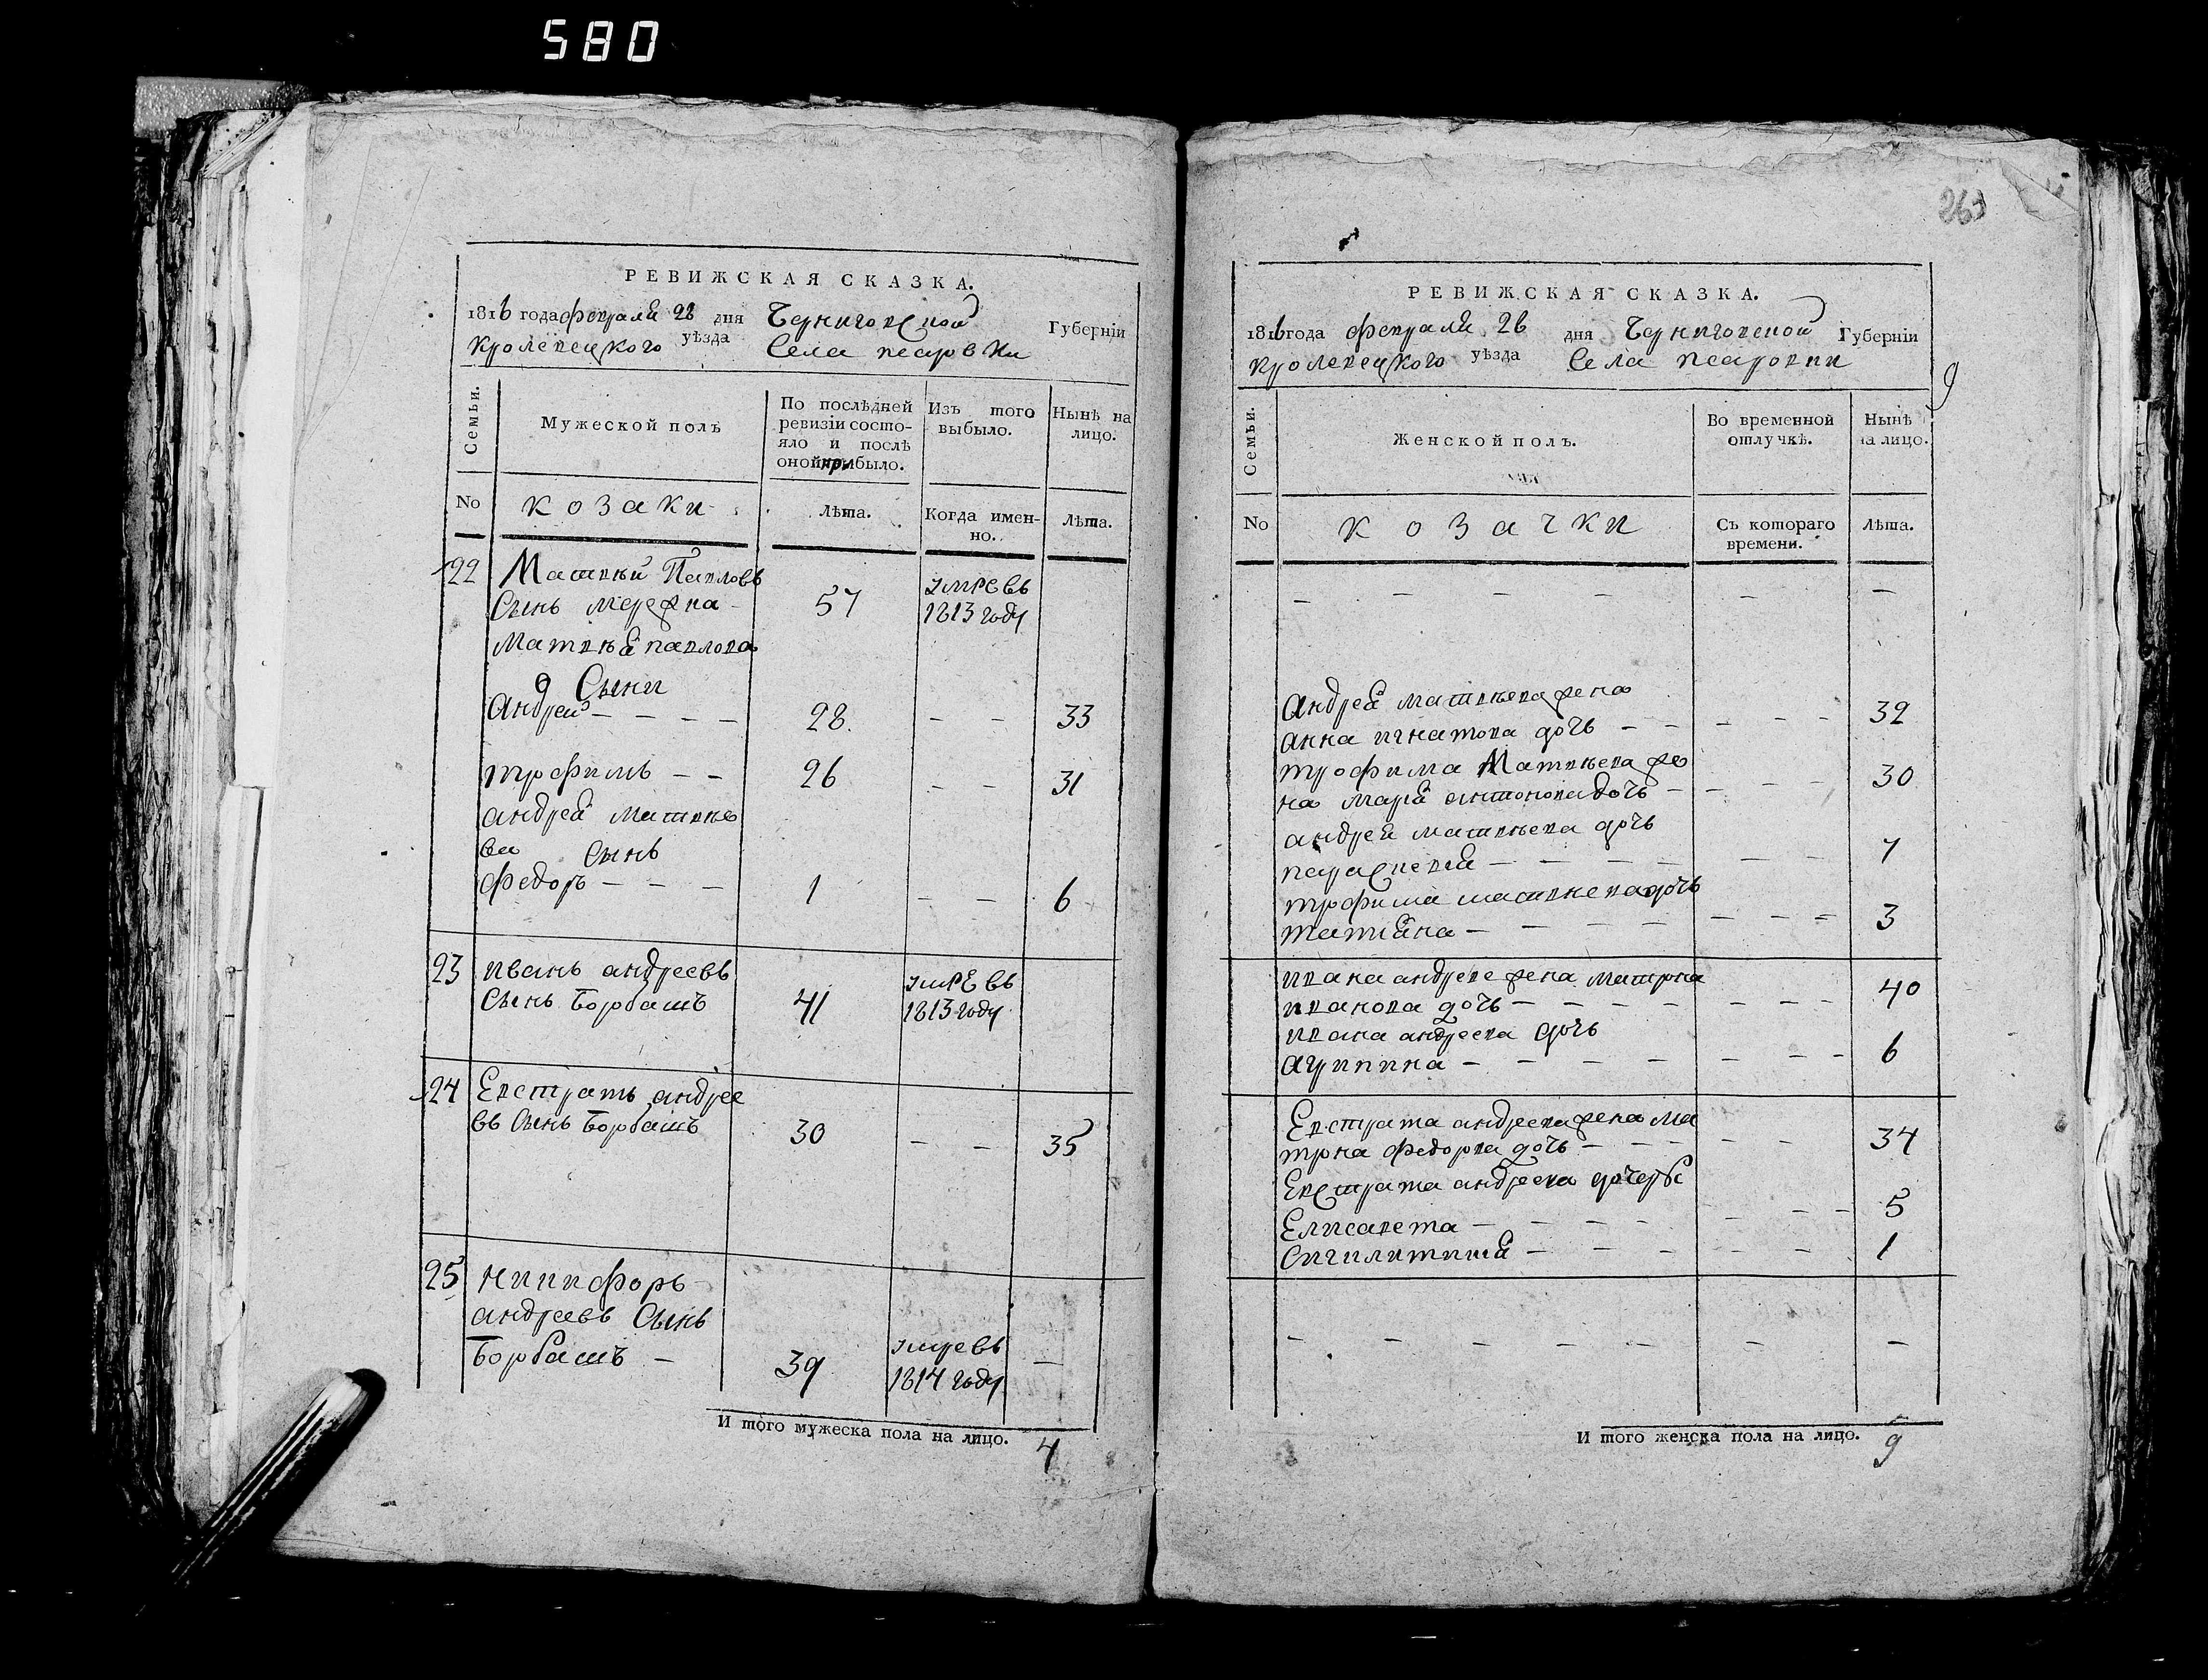 580
РЕВИЖСКАЯ СКАЗКА.
1816 года февраля 28 дня Черниговской Губерніи
Кролевецкого уѣзда Села псаровки
Семьи.
Мужеской полъ
По послѣдней
ревизіи состо-
яло и послѣ
оной прибыло.
Изъ того
выбыло.
Нынѣ на
лицо.
No
козаки
лѣта.
Когда имен-
но.
Лѣта.
22 Матвѣй Павловъ
сынъ 57 умре въ
1813 году
Матвѣя павлова
сыни
Андрей — — — — 28 — — 33
трофимъ — — 26 — — 31
андрея матвѣе
ва сынъ
федоръ — — — 1 — — 6
23 иванъ андреевъ
сынъ борбашъ 41 умре въ
1813 году
24 Евстратъ андрее
въ сынъ борбашъ 30 — — 35
25 никифоръ
андреевъ сынъ
борбашъ — 39 умре въ
1814 году —
И того мужеска пола на лицо. 4
263
РЕВИЖСКАЯ СКАЗКА.
1816 года февраля 28 дня Черниговской Губерніи
кролевецкого уѣзда Села псаровки
9
Семьи.
Женской полъ.
Во временной
отлучкѣ.
Нынѣ
на лицо.
No
козачки
Съ котораго
времени.
лѣта.
— — — — — —
андрея матвѣева жена
анна игнатова дочь — — — — — 32
трофима Матвѣева же
на маря антонова дочь — — — — 30
андрея матвѣева дочь
параскевия — — — — — — 7
трофима матвѣева дочь
татияна — — — — — — — 3
ивана андреве жена матрона
иванова дочь — — — — — — — — 40
ивана андреева дочь
агрипина — — — — — — — 6
Евстрата андреева жена ма
трна федорва дочь — — — — — — 34
Евстрата андреева дочеры
Елисавета — — — — — — — 5
— — — — — — 1
— — — — — — —
И того женска пола на лицо. 9